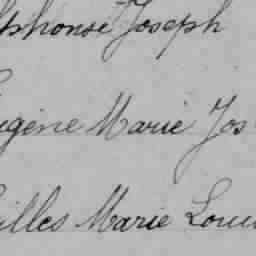 lphonse Joseph
ugène Marie Jos
illes Marie Loui